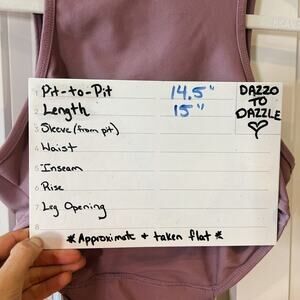 1 Pit-to-Pit 14.5"
2 Length 15"
3 Sleeve (from pit)
4 Waist
5 Inseam
6 Rise
7 Leg Opening
8
* Approximate + taken flat *
DAZZO
TO
DAZZLE
♡